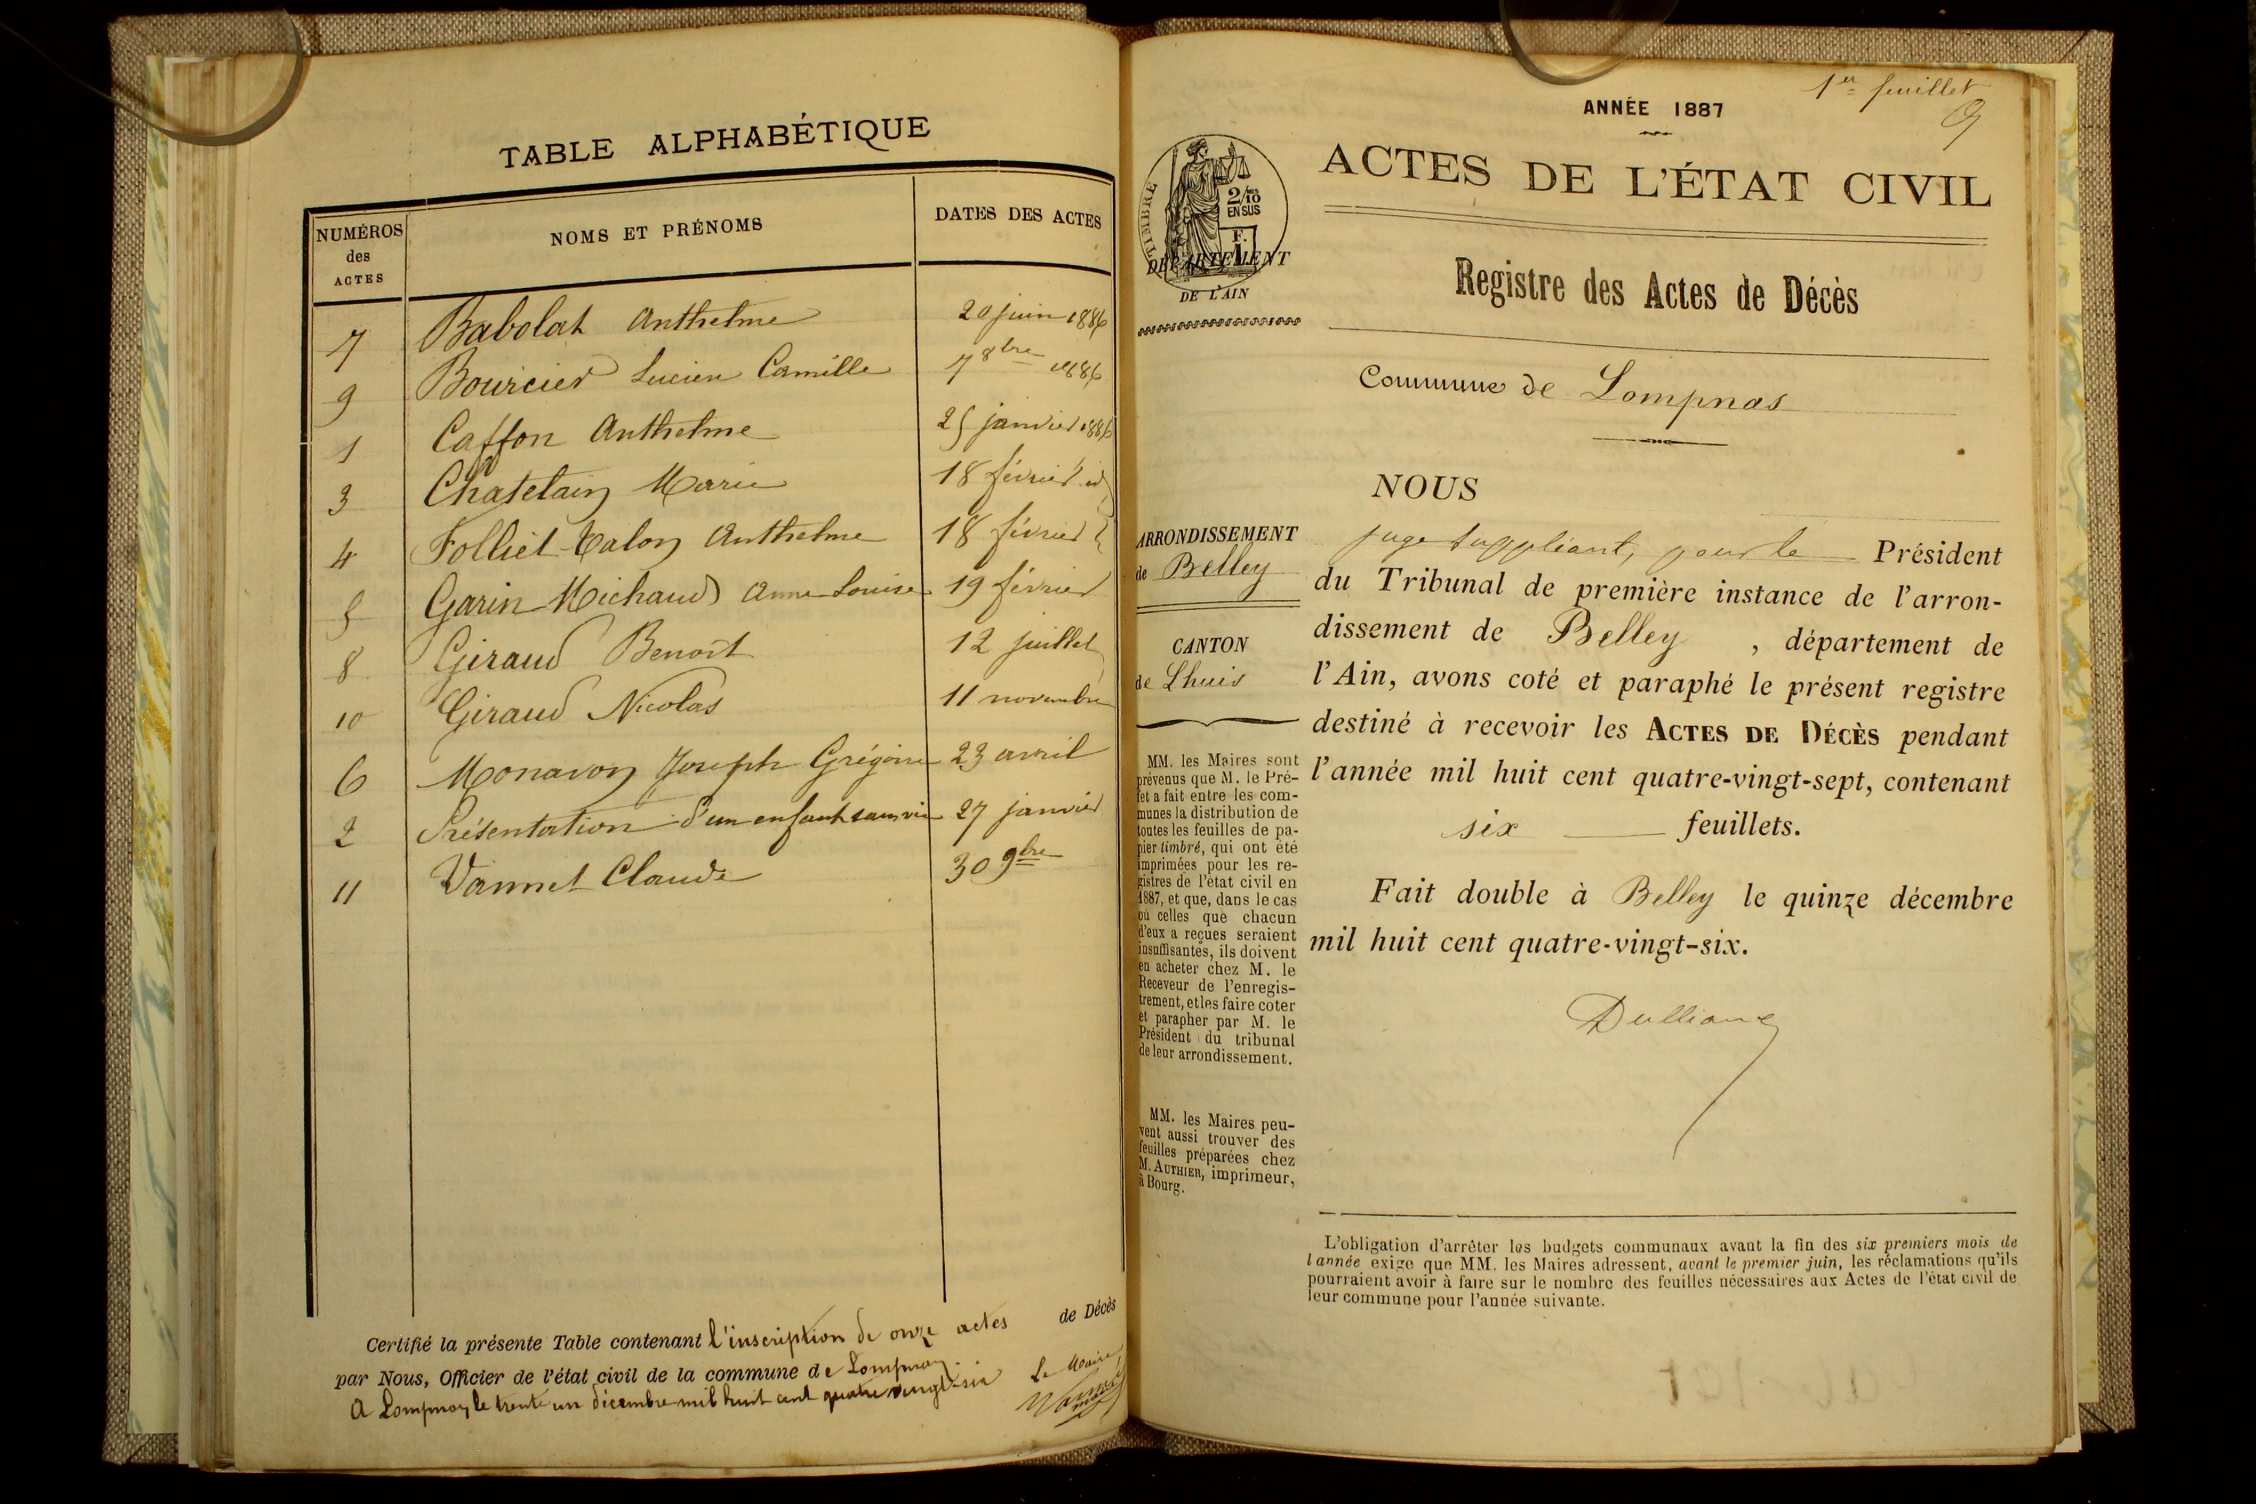 TABLE ALPHABÉTIQUE
NUMÉROS des ACTES
NOMS ET PRÉNOMS
DATES DES ACTES
7 Babolat Anthelme 20 juin 1886
9 Bourcier Lucien Camille 7 8bre 1886
1 Caffon Anthelme 25 janvier 1886
3 Chatelain Marie 18 février id
4 Folliet-Calon Anthelme 18 février
5 Garin Michaud Anne Louise 19 février
8 Giraud Benoit 12 juillet
10 Giraud Nicolas 11 novembre
6 Monavon Joseph Grégoire 23 avril
2 Présentation d'un enfant sans vie 27 janvier
11 Vannet Claude 30 9bre
Certifié la présente Table contenant l'inscription de onze actes de Décès
par Nous, Officier de l'état civil de la commune de Lompnas.
A Lompnas, le trente un décembre mil huit cent quatre vingt-six
Le Maire
1er feuillet
ANNÉE 1887
ACTES DE L'ÉTAT CIVIL
TIMBRE
2/10
EN SUS
F.
1
DÉPARTEMENT
DE L'AIN
Registre des Actes de Décès
Commune de Lompnas
ARRONDISSEMENT
de Belley
CANTON
de Lhuis
MM. les Maires sont
prévenus que M. le Pré-
fet a fait entre les com-
munes la distribution de
toutes les feuilles de pa-
pier timbré, qui ont été
imprimées pour les re-
gistres de l'état civil en
1887, et que, dans le cas
où celles que chacun
d'eux a reçues seraient
insuffisantes, ils doivent
en acheter chez M. le
Receveur de l'enregis-
trement, et les faire coter
et parapher par M. le
Président du tribunal
de leur arrondissement.
MM. les Maires peu-
vent aussi trouver des
feuilles préparées chez
M. AUTHIER, imprimeur,
à Bourg.
NOUS
juge suppléant, pour le Président
du Tribunal de première instance de l'arron-
dissement de Belley , département de
l'Ain, avons coté et paraphé le présent registre
destiné à recevoir les ACTES DE DÉCÈS pendant
l'année mil huit cent quatre-vingt-sept, contenant
six feuillets.
Fait double à Belley le quinze décembre
mil huit cent quatre-vingt-six.
L'obligation d'arrêter les budgets communaux avant la fin des six premiers mois de
l'année exige que MM. les Maires adressent, avant le premier juin, les réclamations qu'ils
pourraient avoir à faire sur le nombre des feuilles nécessaires aux Actes de l'état civil de
leur commune pour l'année suivante.